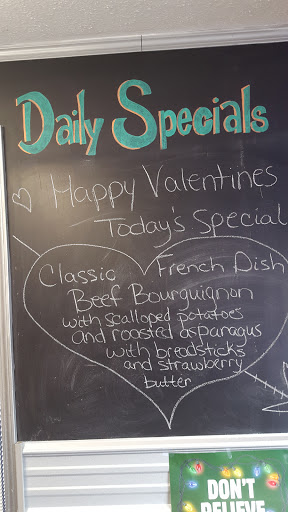 Daily Specials
Happy Valentines
Today's Special
Classic French Dish
Beef Bourguignon
with scalloped potatoes
and roasted asparagus
with breadsticks
and strawberry
butter
DON'T
BELIEVE